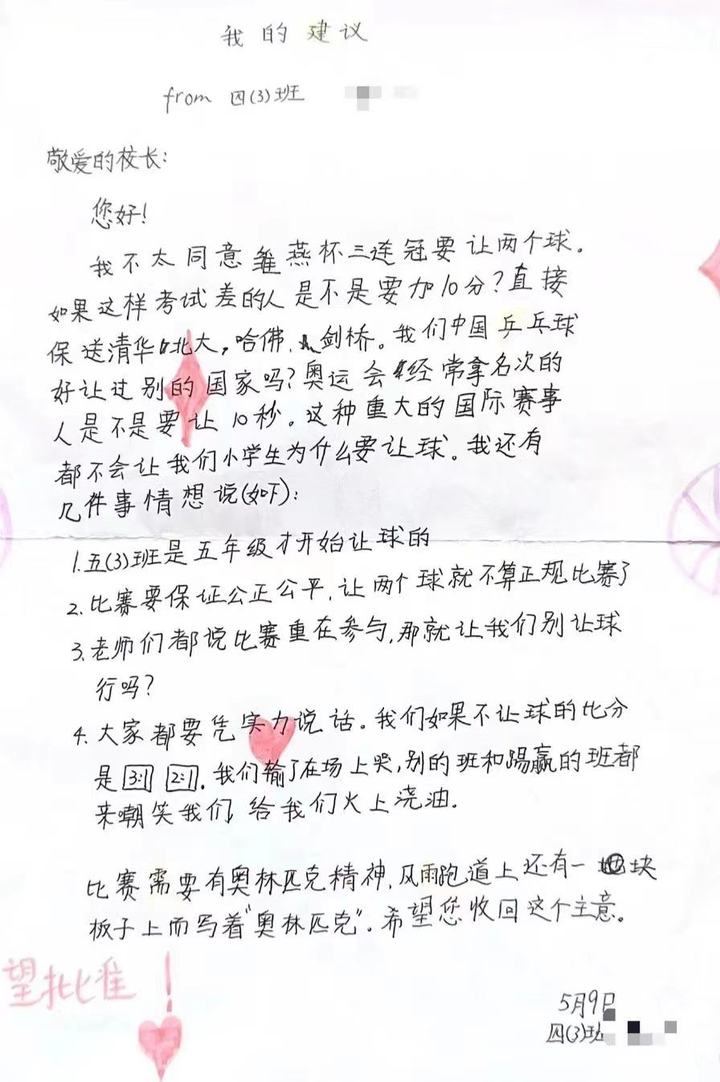 我的建议
from 四(3)班
敬爱的校长:
您好!
我不太同意雏燕杯三连冠要让两个球。
如果这样考试差的人是不是要加10分?直接
保送清华北大,哈佛、剑桥。我们中国乒乓球
好让过别的国家吗?奥运会经常拿名次的
人是不是要让10秒。这种重大的国际赛事
都不会让我们小学生为什么要让球。我还有
几件事情想说(如下):
1.五(3)班是五年级才开始让球的
2.比赛要保证公正公平,让两个球就不算正规比赛了
3.老师们都说比赛重在参与,那就让我们别让球
行吗?
4.大家都要凭实力说话。我们如果不让球的比分
是3:1 2:1。我们输了在场上哭,别的班和踢赢的班都
来嘲笑我们,给我们火上浇油.
比赛需要有奥林匹克精神,风雨跑道上还有一块
板子上面写着"奥林匹克"。希望您收回这个主意。
望批准!
5月9日
四(3)班